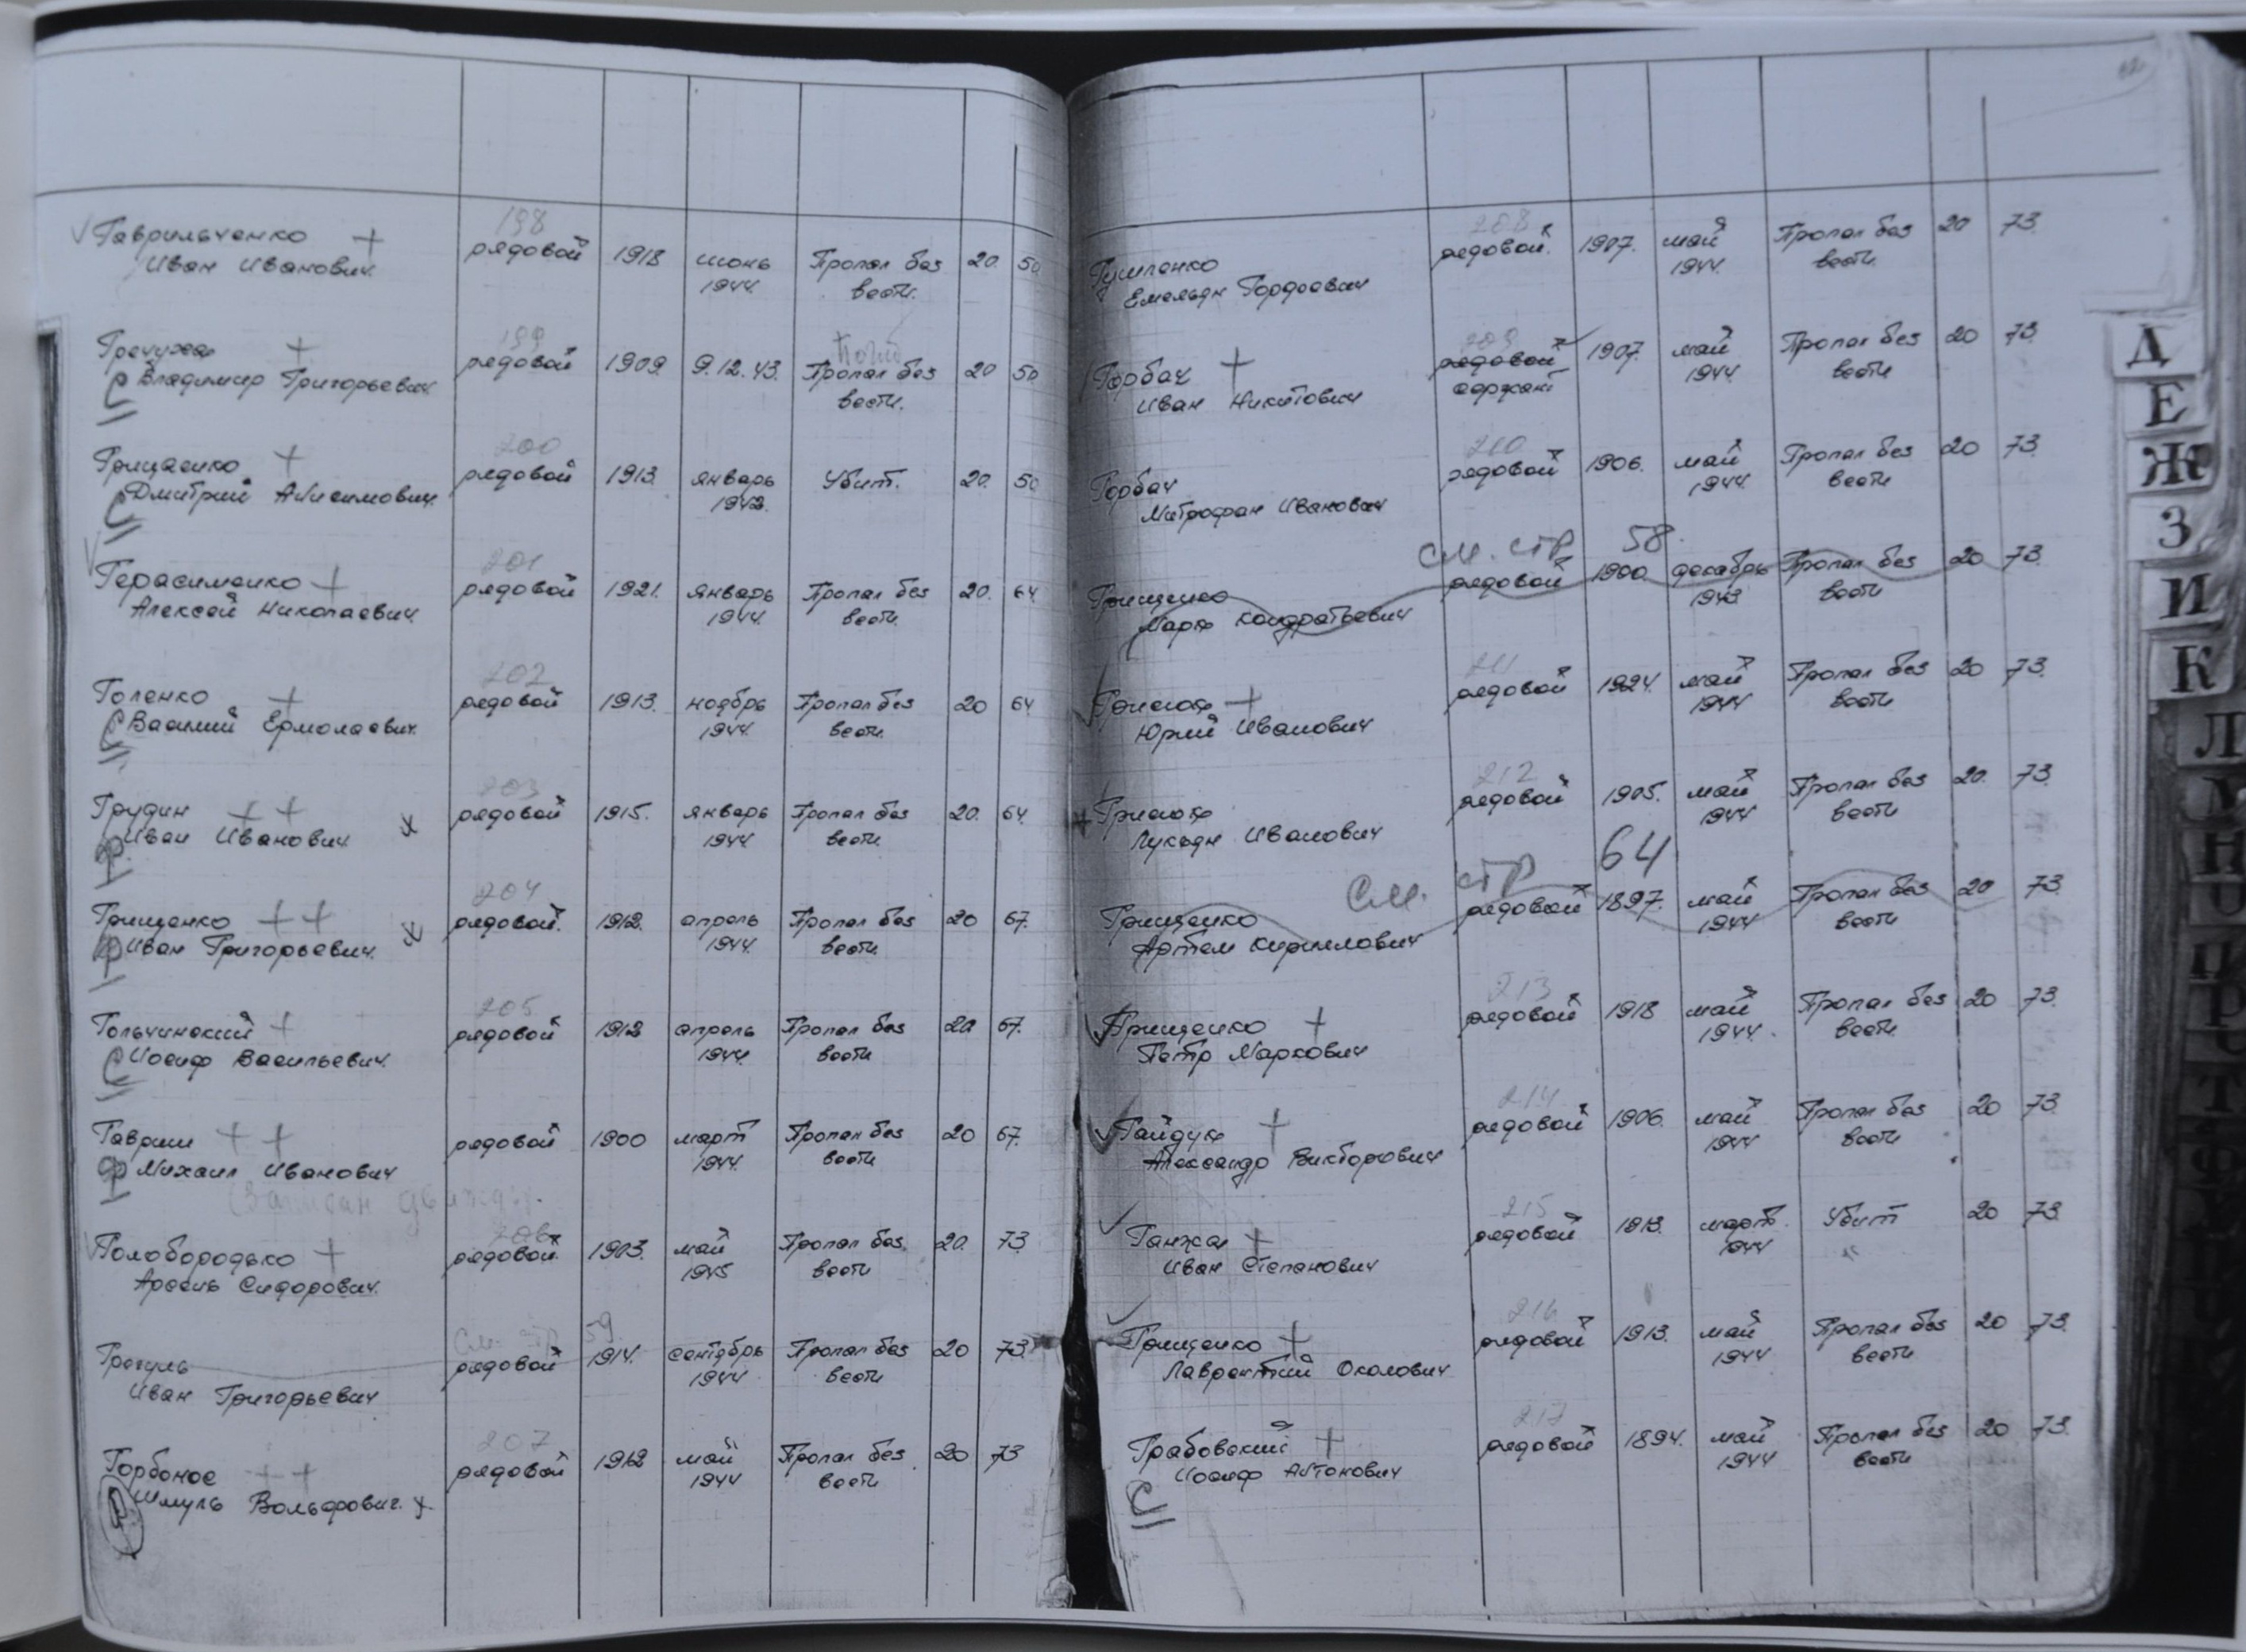 198
Гаврильченко рядовой 1918 июнь Пропал без 20. 50
Иван Иванович. 1944. вести.
199 Погиб
Гречуха рядовой 1909. 9.12.43. Пропал без 20 50
Владимир Григорьевич вести.
200
Грицаенко рядовой 1913. январь Убит. 20. 50
Дмитрий Анисимович 1942.
201
Герасименко рядовой 1921. январь Пропал без 20. 64
Алексей Николаевич. 1944. вести.
202
Голенко рядовой 1913. ноябрь Пропал без 20 64
Василий Ермолаевич. 1944. вести.
203
Грудин рядовой 1915. январь Пропал без 20. 64.
Иван Иванович. 1944 вести.
204
Грищенко рядовой. 1912. апрель Пропал без 20 67.
Иван Григорьевич. 1944. вести.
205
Гольчинский рядовой 1912 апрель Пропал без 20 67.
Иосиф Васильевич. 1944. вести
Гавриш рядовой 1900 март Пропал без 20 67.
Михаил Иванович 1944. вести
(Записан дважды.
206
Голобородько рядовой. 1903. май Пропал без 20. 73
Арсень Сидорович. 1945 вести
См. стр 59
Грегуль рядовой 1914. сентябрь Пропал без 20 73.
Иван Григорьевич 1944 вести
207
рядовой 1912 май Пропал без 20 73
Шмуль Вольфович. 1944 вести
208
рядовой. 1907. май Пропал без 20 73.
Емельян Гордеевич 1944. вести.
209
Горбач рядовой 1907. май Пропал без 20 73.
Иван Никитович сержант 1944. вести
210
Горбач рядовой 1906. май Пропал без 20 73.
Митрофан Иванович 1944. вести
См. стр 58.
Грищенко рядовой 1900. декабрь Пропал без 20 73.
Марк Кондратьевич 1943 вести
211
рядовой 1924. май Пропал без 20 73.
Юрий Иванович 1944 вести
212
рядовой 1905. май Пропал без 20. 73.
Лукьян Иванович 1944 вести
См. стр 64
Грищенко рядовой 1897. май Пропал без 20 73.
Артем Кириллович 1944 вести
213
Грищенко рядовой 1918 май Пропал без 20 73.
Петр Маркович 1944. вести
214
Гайдук рядовой 1906. май Пропал без 20 73.
Александр Викторович 1944 вести
215
Ганжа рядовой 1913. март. Убит 20 73.
Иван Степанович 1944
216
Грищенко рядовой 1913. май Пропал без 20 73.
Лаврентий 1944 вести
217
Грабовский рядовой 1894. май Пропал без 20 73.
Иосиф Антонович 1944 вести
С
Д
Е
Ж
З
И
К
Л